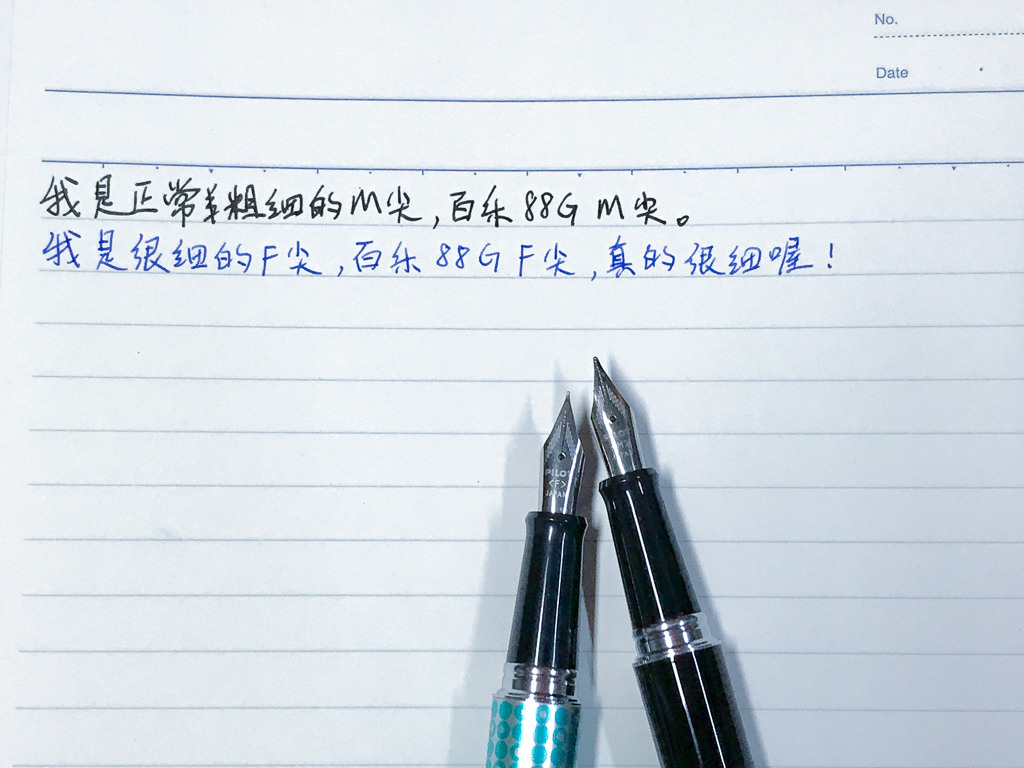 No.
Date
我是正常粗细的M尖，百乐88G M尖。
我是很细的F尖，百乐88G F尖，真的很细喔！
PILOT
<F>
JAPAN